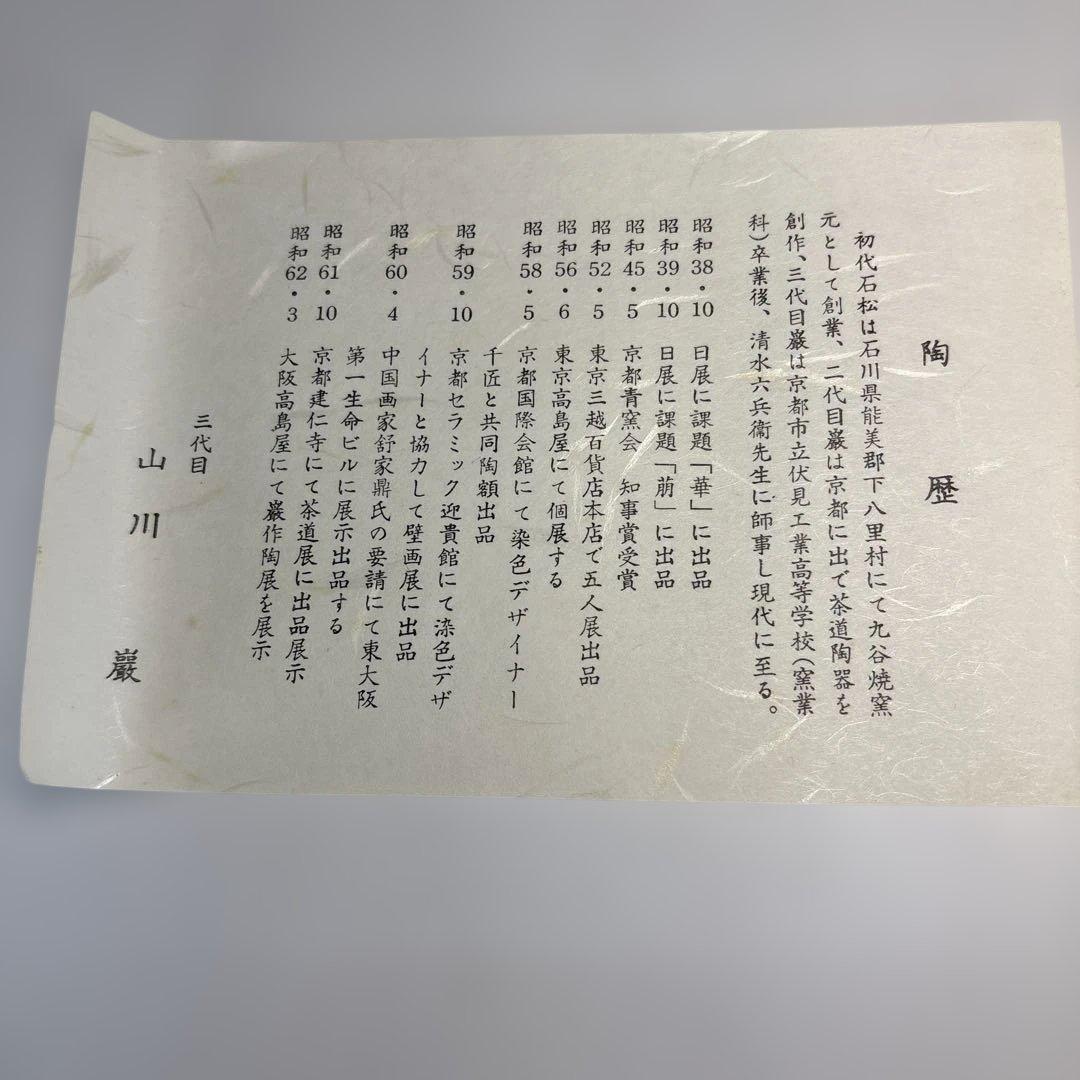 陶歴
初代石松は石川県能美郡下八里村にて九谷焼窯
元として創業、二代目巖は京都に出で茶道陶器を
創作、三代目巖は京都市立伏見工業高等学校（窯業
科）卒業後、清水六兵衛先生に師事し現代に至る。
昭和38・10 日展に課題「華」に出品
昭和39・10 日展に課題「萠」に出品
昭和45・5 京都青窯会 知事賞受賞
昭和52・5 東京三越百貨店本店で五人展出品
昭和56・6 東京高島屋にて個展する
昭和58・5 京都国際会館にて染色デザイナー
千匠と共同陶額出品
昭和59・10 京都セラミック迎貴館にて染色デザ
イナーと協力して壁画展に出品
昭和60・4 中国画家舒家鼎氏の要請にて東大阪
第一生命ビルに展示出品する
昭和61・10 京都建仁寺にて茶道展に出品展示
昭和62・3 大阪高島屋にて巖作陶展を展示
三代目
山川巖